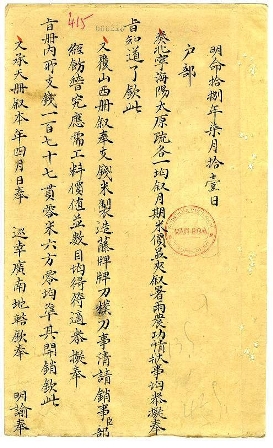 415
明命拾捌年柒月拾壹日
戶部
奏北寧海陽太原疏各一均叙月期米價並夾叙暑雨農功情狀事均恭擬奉
旨知道了欽此
又覆山西册叙奉支錢米製造藤牌牌刀刀事清請銷事臣部
經飭究應需工料價值並數目均得符適恭擬奉
旨册內所支錢一百七十七貫零米六方零均準其開銷欽此
又承天册叙本年四月日奉 巡幸廣南地轄欽奉 明諭奉